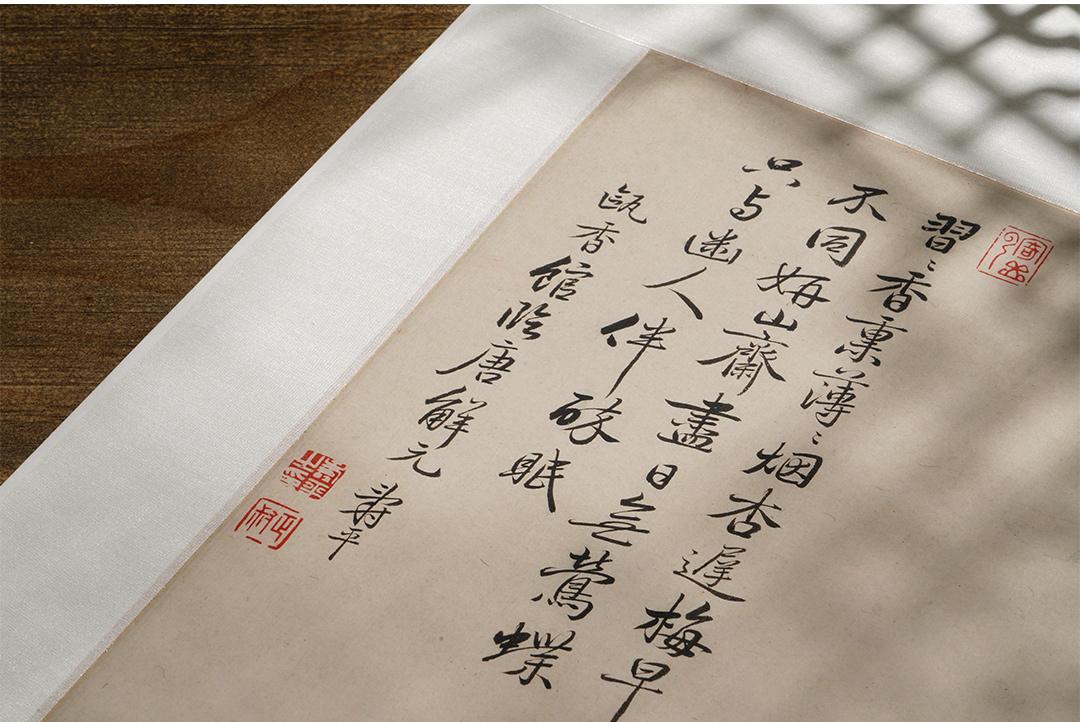 習〻香熏薄〻烟杏遲梅早
不同妍山齋盡日無鶯蝶
只与幽人伴醉眠
甌香館臨唐解元
壽平
正叔